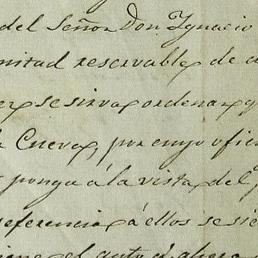 del Señor Don Ygnacio
mitad reservable, de
se sirva ordenar q
Cueva, por cuyo ofic
ponga á la vista del
referencia, á ellos se si
el auto d. ahora